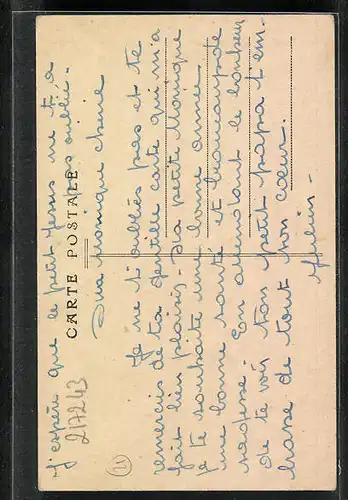 J'espère que le petit Jesus ne t'a
pas oublié.
CARTE POSTALE
217243
Ma monique cherie
Je ne t'oublies pas et te
remercis de ta gentille carte qui m'a
fait bien plaisir. Ma petite Monique
je te souhaite une bonne année
une bonne santé et beaucoup de
sagesse. En attendant le bonheur
de te voir ton petit papa t'em-
brasse de tout son cœur.
21